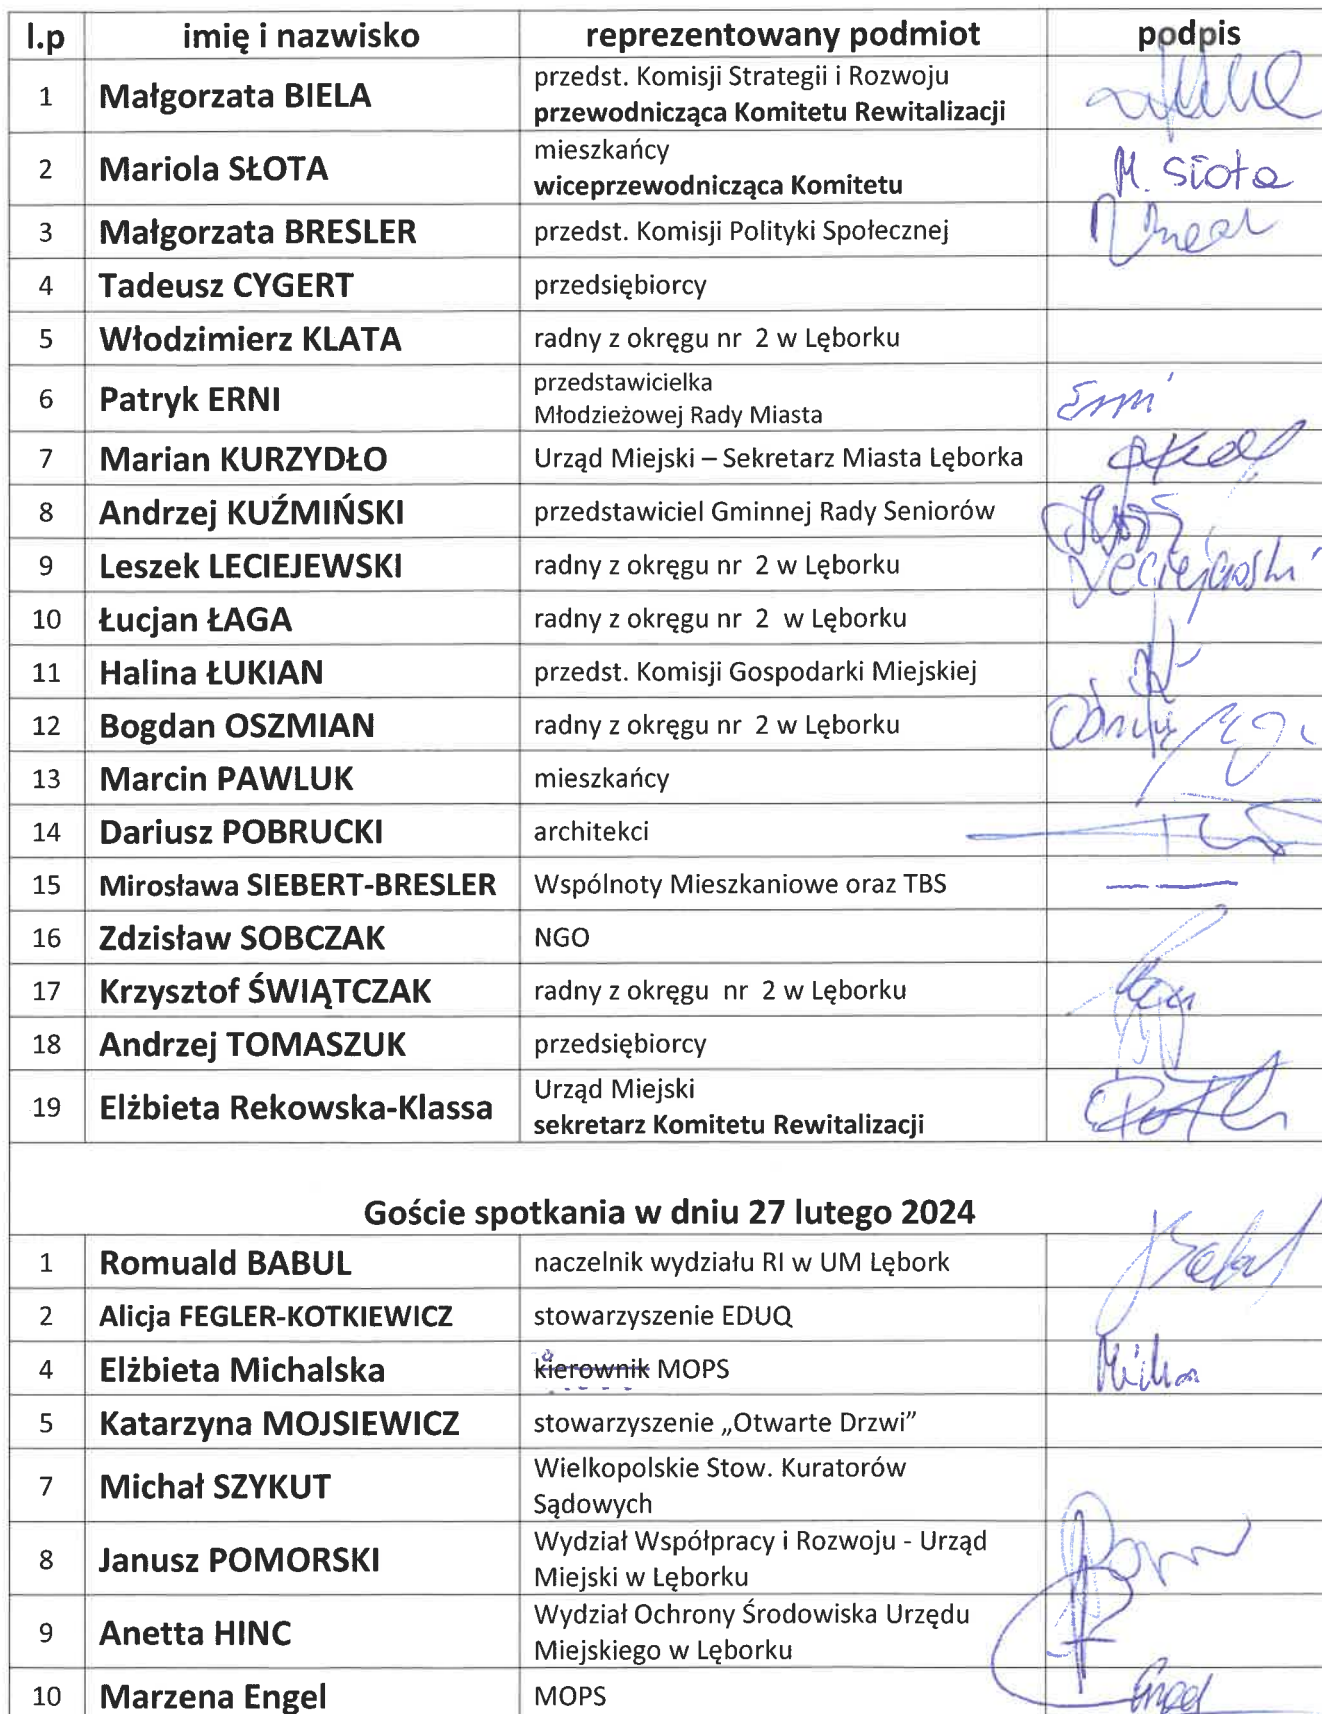 l.p imię i nazwisko reprezentowany podmiot podpis
1 Małgorzata BIELA przedst. Komisji Strategii i Rozwoju
przewodnicząca Komitetu Rewitalizacji
2 Mariola SŁOTA mieszkańcy
wiceprzewodnicząca Komitetu M. Słota
3 Małgorzata BRESLER przedst. Komisji Polityki Społecznej
4 Tadeusz CYGERT przedsiębiorcy
5 Włodzimierz KLATA radny z okręgu nr 2 w Lęborku
6 Patryk ERNI przedstawicielka
Młodzieżowej Rady Miasta Erni
7 Marian KURZYDŁO Urząd Miejski – Sekretarz Miasta Lęborka
8 Andrzej KUŹMIŃSKI przedstawiciel Gminnej Rady Seniorów
9 Leszek LECIEJEWSKI radny z okręgu nr 2 w Lęborku Leciejewski
10 Łucjan ŁAGA radny z okręgu nr 2 w Lęborku
11 Halina ŁUKIAN przedst. Komisji Gospodarki Miejskiej
12 Bogdan OSZMIAN radny z okręgu nr 2 w Lęborku
13 Marcin PAWLUK mieszkańcy
14 Dariusz POBRUCKI architekci
15 Mirosława SIEBERT-BRESLER Wspólnoty Mieszkaniowe oraz TBS
16 Zdzisław SOBCZAK NGO
17 Krzysztof ŚWIĄTCZAK radny z okręgu nr 2 w Lęborku
18 Andrzej TOMASZUK przedsiębiorcy
19 Elżbieta Rekowska-Klassa Urząd Miejski
sekretarz Komitetu Rewitalizacji
Goście spotkania w dniu 27 lutego 2024
1 Romuald BABUL naczelnik wydziału RI w UM Lębork
2 Alicja FEGLER-KOTKIEWICZ stowarzyszenie EDUQ
4 Elżbieta Michalska kierownik MOPS
5 Katarzyna MOJSIEWICZ stowarzyszenie „Otwarte Drzwi”
7 Michał SZYKUT Wielkopolskie Stow. Kuratorów
Sądowych
8 Janusz POMORSKI Wydział Współpracy i Rozwoju - Urząd
Miejski w Lęborku
9 Anetta HINC Wydział Ochrony Środowiska Urzędu
Miejskiego w Lęborku
10 Marzena Engel MOPS Engel